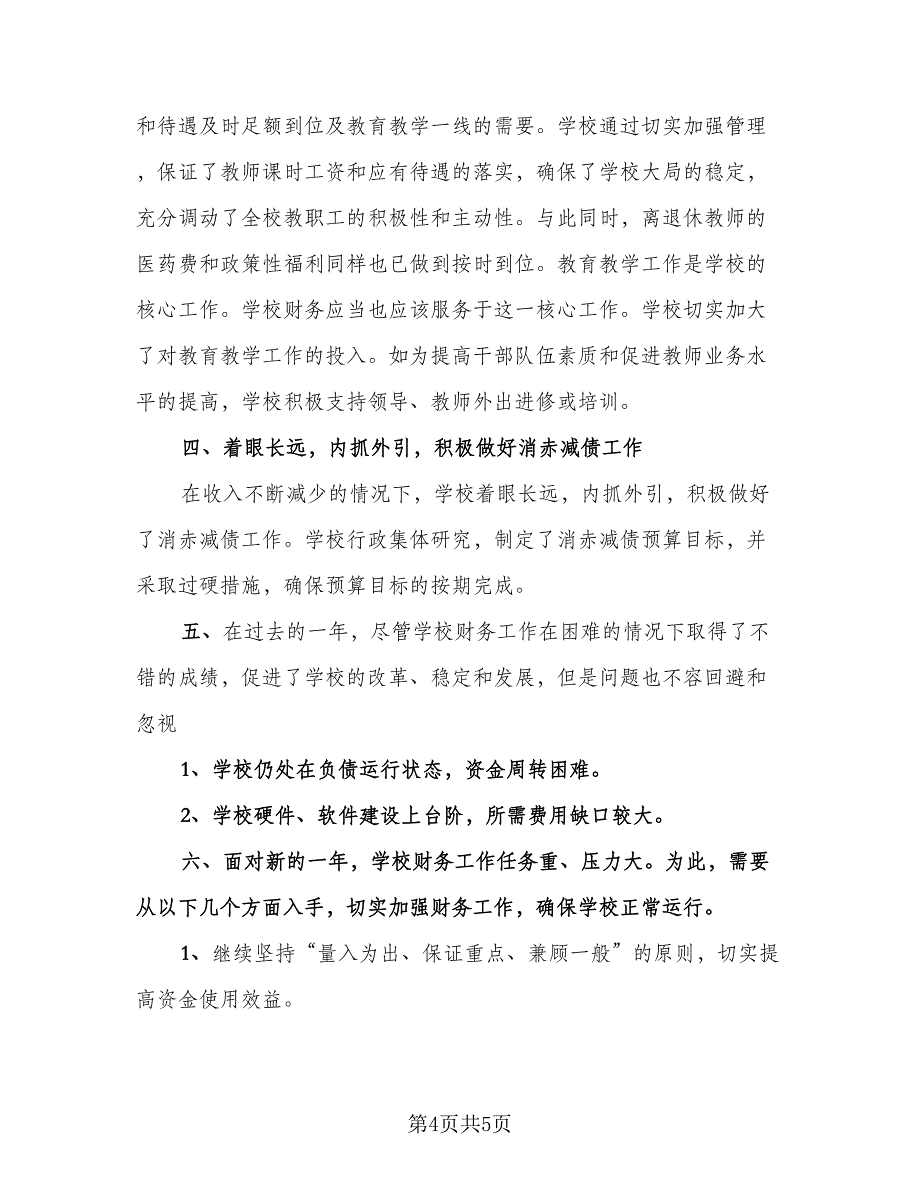 和待遇及时足额到位及教育教学一线的需要。学校通过切实加强管理
，保证了教师课时工资和应有待遇的落实，确保了学校大局的稳定，
充分调动了全校教职工的积极性和主动性。与此同时，离退休教师的
医药费和政策性福利同样也已做到按时到位。教育教学工作是学校的
核心工作。学校财务应当也应该服务于这一核心工作。学校切实加大
了对教育教学工作的投入。如为提高干部队伍素质和促进教师业务水
平的提高，学校积极支持领导、教师外出进修或培训。
四、着眼长远，内抓外引，积极做好消赤减债工作
在收入不断减少的情况下，学校着眼长远，内抓外引，积极做好
了消赤减债工作。学校行政集体研究，制定了消赤减债预算目标，并
采取过硬措施，确保预算目标的按期完成。
五、在过去的一年，尽管学校财务工作在困难的情况下取得了不
错的成绩，促进了学校的改革、稳定和发展，但是问题也不容回避和
忽视
1、学校仍处在负债运行状态，资金周转困难。
2、学校硬件、软件建设上台阶，所需费用缺口较大。
六、面对新的一年，学校财务工作任务重、压力大。为此，需要
从以下几个方面入手，切实加强财务工作，确保学校正常运行。
1、继续坚持“量入为出、保证重点、兼顾一般”的原则，切实提
高资金使用效益。
第4页共5页